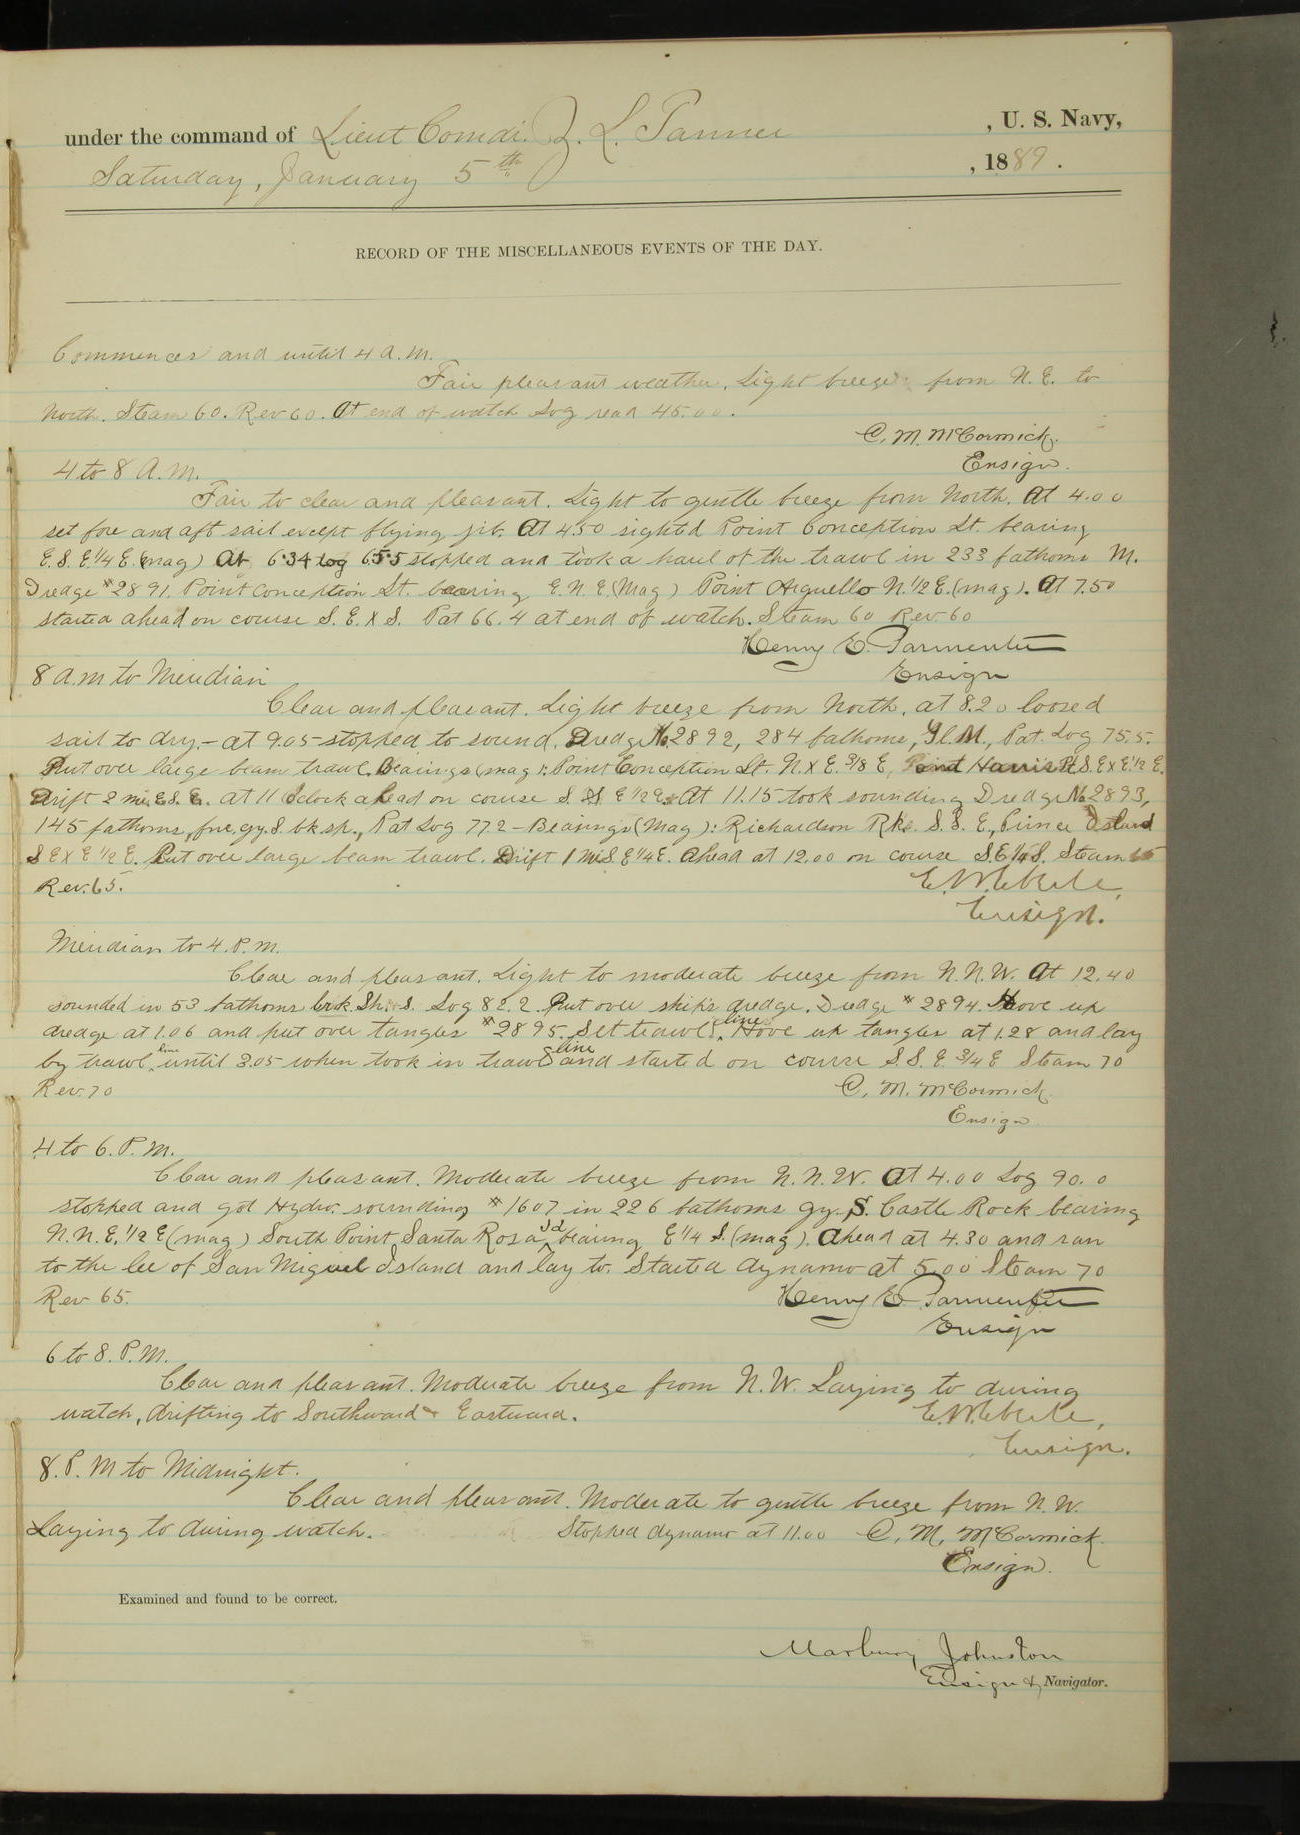 under the command of Lieut Comdr. Z. L. Tanner , U. S. Navy,
Saturday, January 5th , 1889.
RECORD OF THE MISCELLANEOUS EVENTS OF THE DAY.
Commences and until 4 A.M.
Fair pleasant weather. Light breeze from N.E. to
North. Steam 60. Rev 60. At end of watch Log read 45.00.
C. M. McCormick.
Ensign.
4 to 8 A.M.
Fair to clear and pleasant. Light to gentle breeze from North. At 4.00
set fore and aft sail except flying jib. At 4.50 sighted Point Conception Lt. bearing
E.S.E. 1/4 E. (mag) At 6.34 log 65.5 stopped and took a haul of the trawl in 233 fathoms M.
Dredge #2891. Point Conception Lt. bearing E.N.E. (Mag) Point Arguello N. 1/2 E. (mag). At 7.50
started ahead on course S.E. X S. Pat 66.4 at end of watch. Steam 60 Rev. 60
Henry E. Parmenter
Ensign
8 A.M to Meridian
Clear and pleasant. Light breeze from North. at 8.20 loosed
sail to dry. - at 9.05 stopped to sound. Dredge No. 2892, 284 fathoms, Yl. M., Pat. Log 75.5.
Put over large beam trawl. Bearings (mag): Point Conception Lt. N. X E. 3/8 E, Point Harris Rk S.E X E 1/2 E.
Drift 2 mi. E.S.E. At 11 O'clock ahead on course S. E 1/2 E. At 11.15 took sounding Dredge No 2893,
145 fathoms, fne. gy. S. bk sp., Pat Log 77.2 - Bearings (Mag): Richardson Rk. S. S. E., Prince Island
S E X E 1/2 E. Put over large beam trawl. Drift 1 Mi S. E 1/4 E. Ahead at 12.00 on course S.E 1/4 S. Steam 65
Rev. 65.
E. W. Eberle,
Ensign.
Meridian to 4. P.M.
Clear and pleasant. Light to moderate breeze from N.N.W. At 12.40
sounded in 53 fathoms brk. Sh. S. Log 82.2. Put over ship's dredge. Dredge #2894. Hove up
dredge at 1.06 and put over tangles #2895. Set trawl line. Hove up tangles at 1.28 and lay
by trawl line until 3.05 when took in trawl line and started on course S.S.E. 3/4 E Steam 70
Rev. 70
C. M. McCormick
Ensign
4 to 6. P.M.
Clear and pleasant. Moderate breeze from N.N.W. At 4.00 Log 90.0
stopped and got Hydro. sounding #1607 in 226 fathoms gy. S. Castle Rock bearing
N.N.E. 1/2 E (mag) South Point, Santa Rosa Id bearing E 1/4 S. (mag). Ahead at 4.30 and ran
to the lee of San Miguel Island and lay to. Started dynamo at 5.00 Steam 70
Rev 65.
Henry E. Parmenter
Ensign
6 to 8. P.M.
Clear and pleasant. Moderate breeze from N.W. Laying to during
watch, drifting to Southward & Eastward.
E. W. Eberle,
Ensign.
8. P.M to Midnight.
Clear and pleasant. Moderate to gentle breeze from N.W.
Laying to during watch. Stopped dynamo at 11.00
C. M. McCormick.
Ensign.
Examined and found to be correct.
Marbury Johnston
Ensign & Navigator.